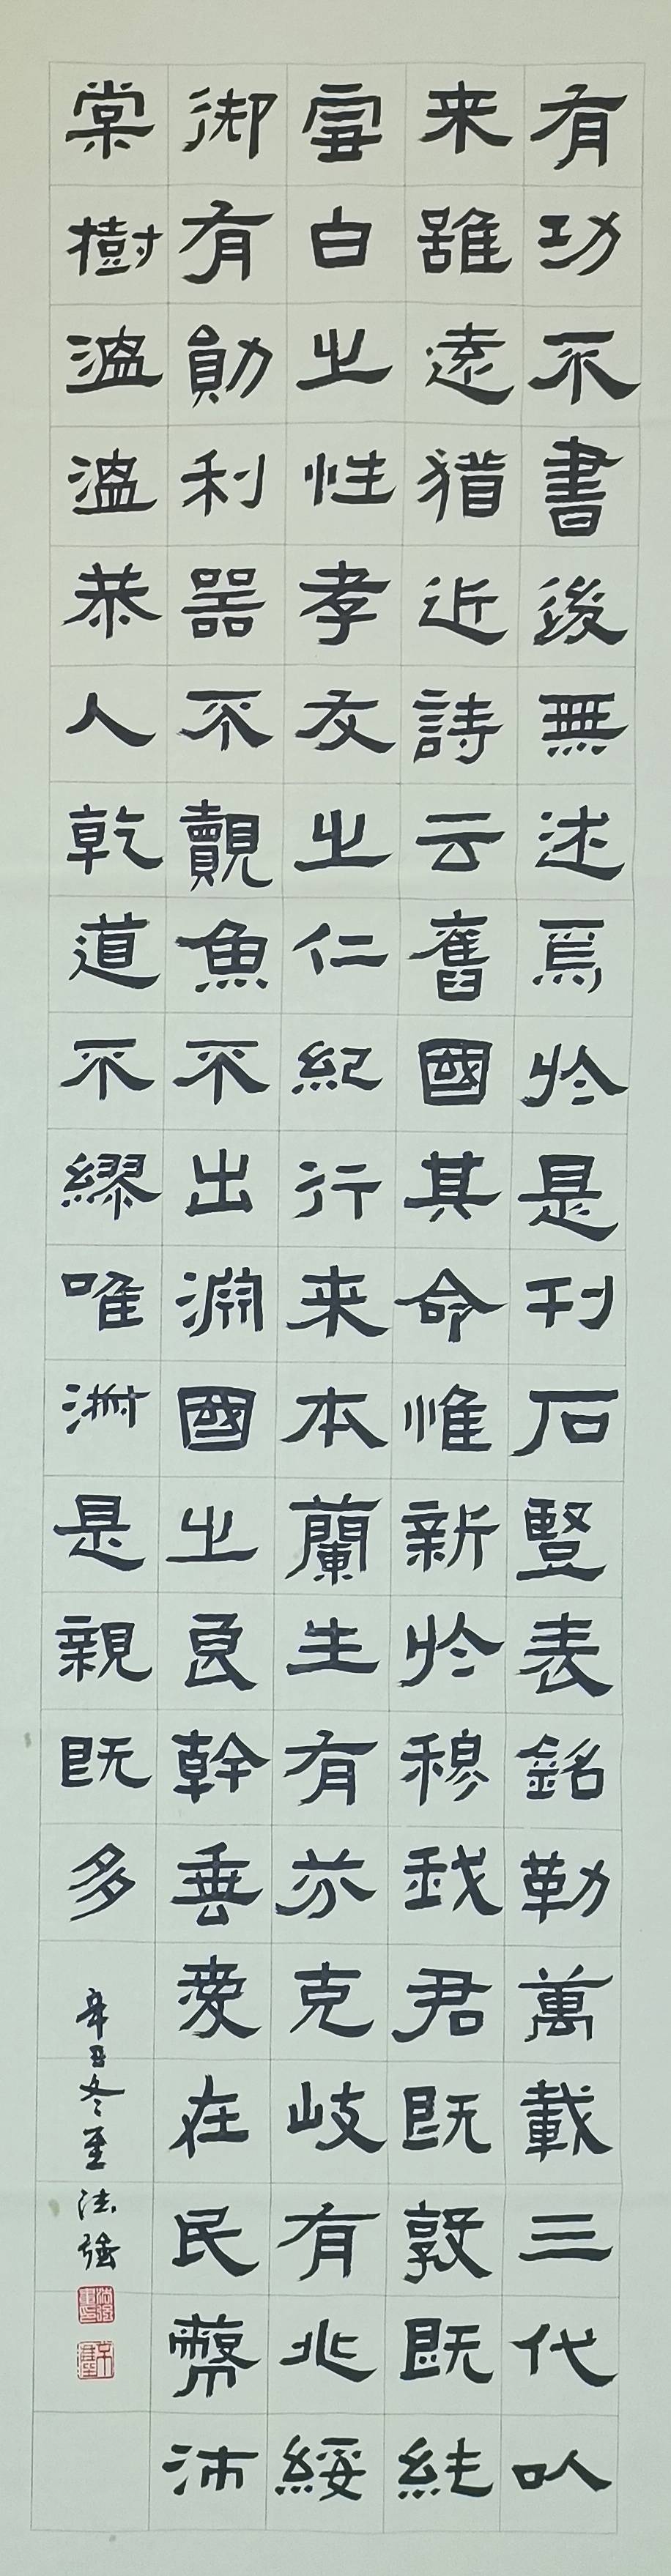 有功不書後無述焉於是刊石豎表銘勒萬載三代以
来雖遠猶近詩云舊國其命惟新於穆我君既敦既純
雪白之性孝友之仁紀行来本蘭生有芬克岐有兆綏
御有勛利器不覿魚不出淵國之良幹垂愛在民幣沛
棠樹溫溫恭人乾道不繆唯淑是親既多
辛丑冬至法強